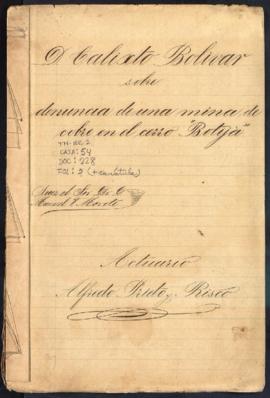 D. Calixto Bolivar
sobre
denuncia de una mina de
cobre en el cerro "Botija"
TH-RE 2
CAJA: 54
DOC: 228
FOL: 9 (+ carátula)
Juez el Sor. Dr. D.
Manuel V. Morote
Actuario
Alfredo Prieto y Risco